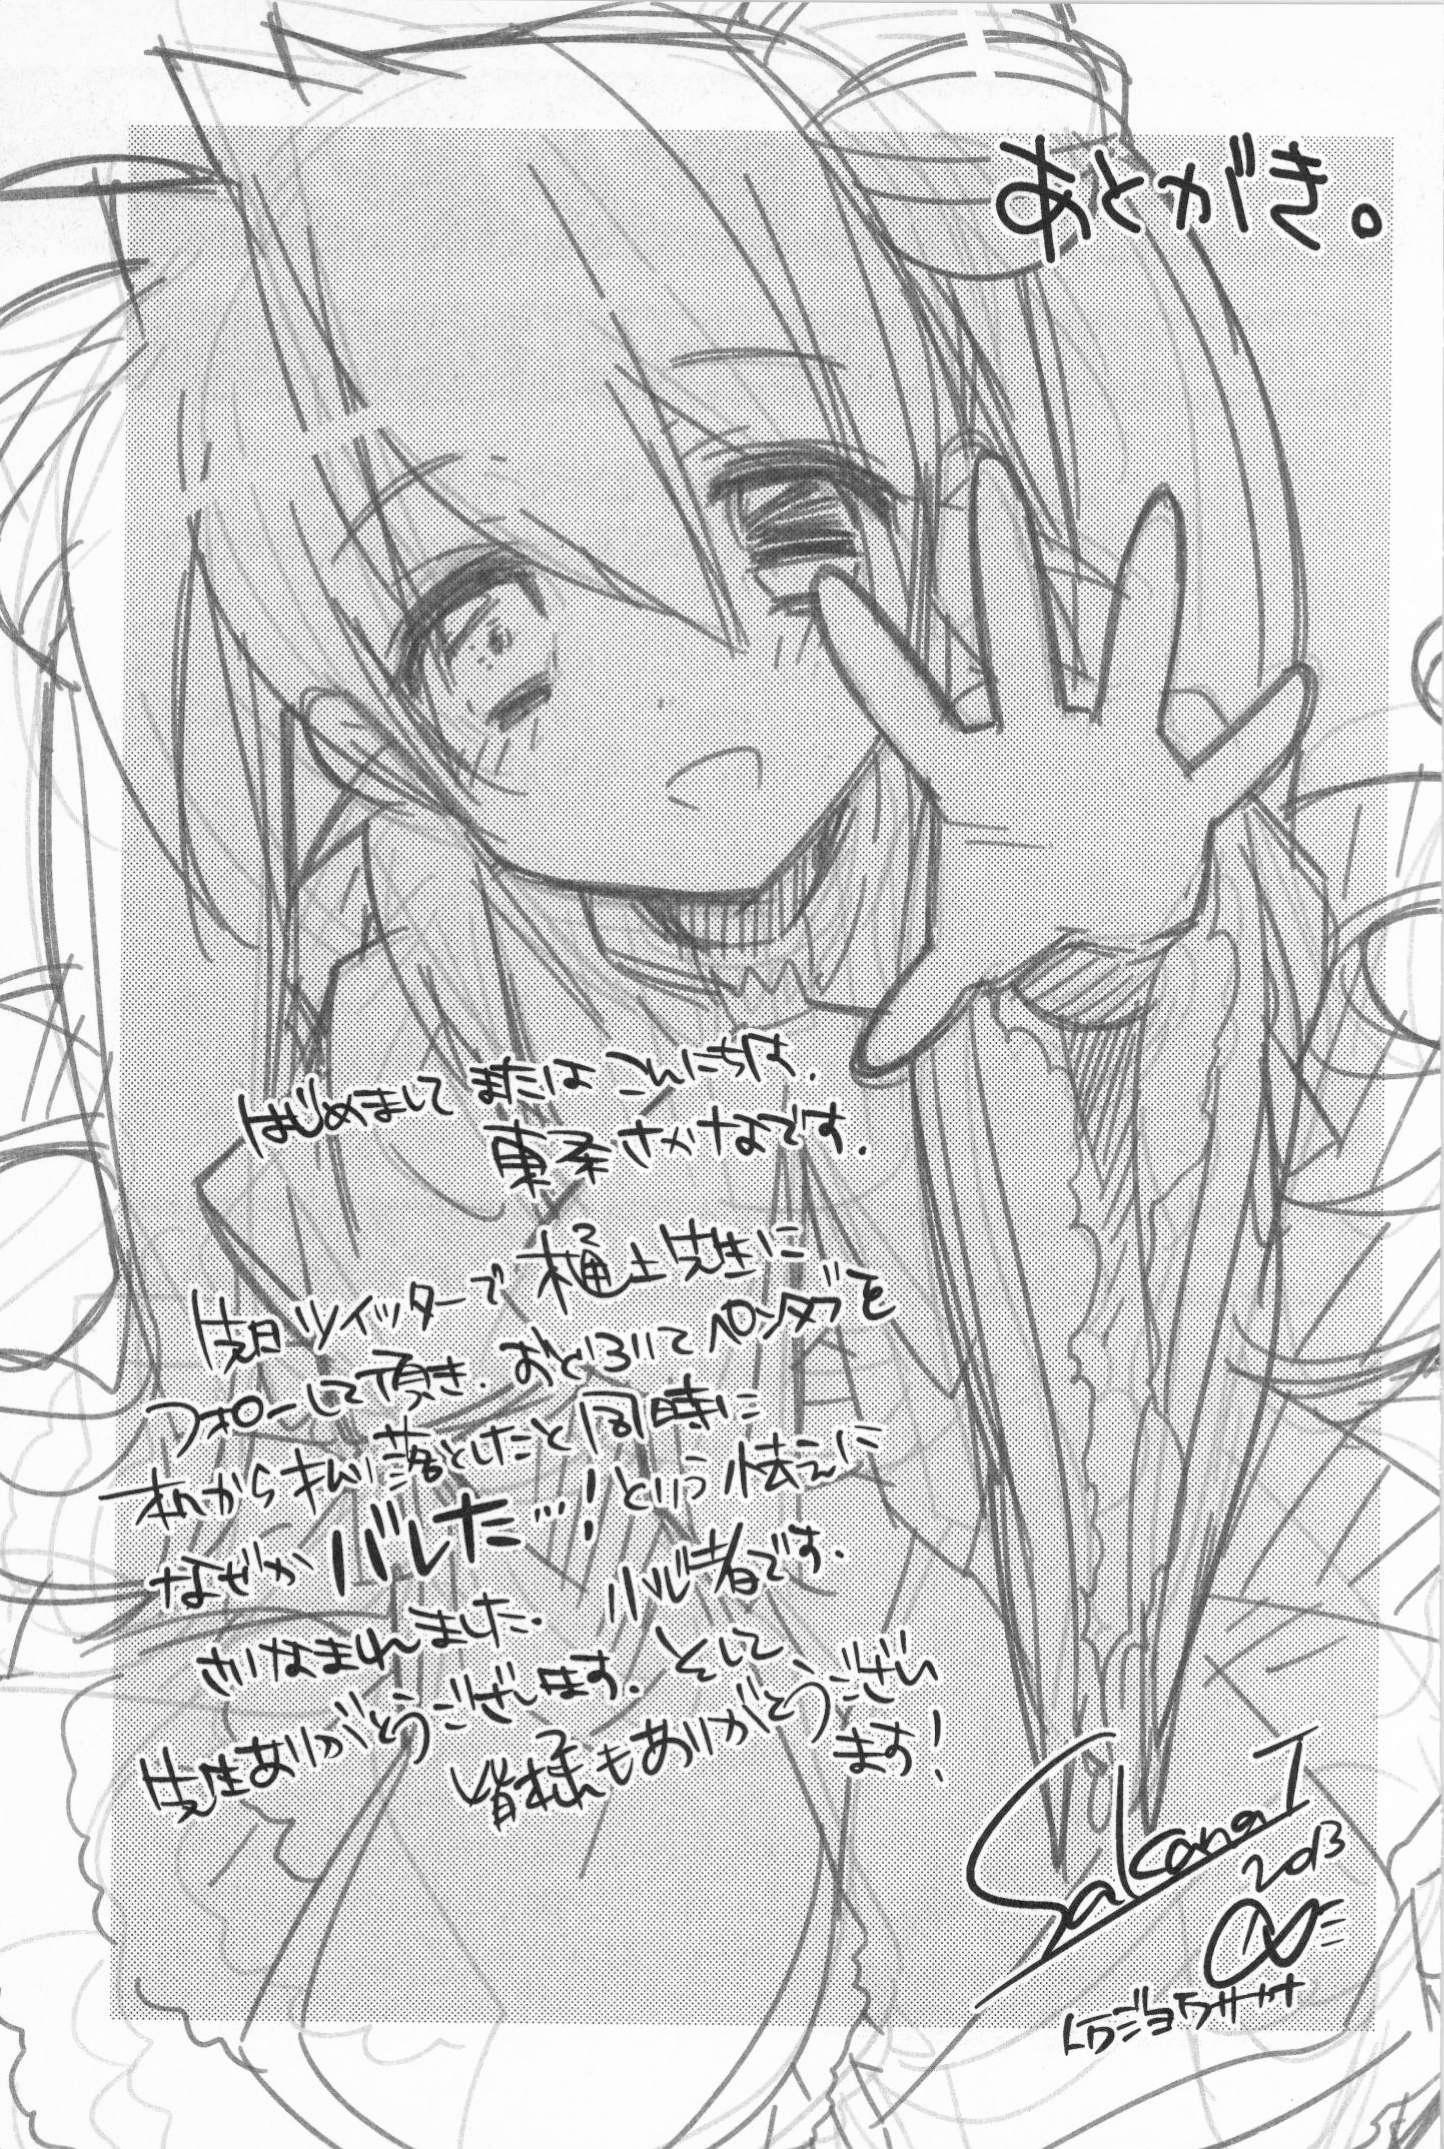 あとがき。
はじめまして またはこんにちは.
東条さかなです.
先日ツイッターで樋上先生に
フォローして頂き、おどろいてペンタブを
机から払い落としたと同時に
なぜか バレた…！という怯えに
さいなまれました. 小心者です.
先生ありがとうございます. そして
皆様もありがとうござい
ます！
Sakana T
2013
トウジョウサカナ